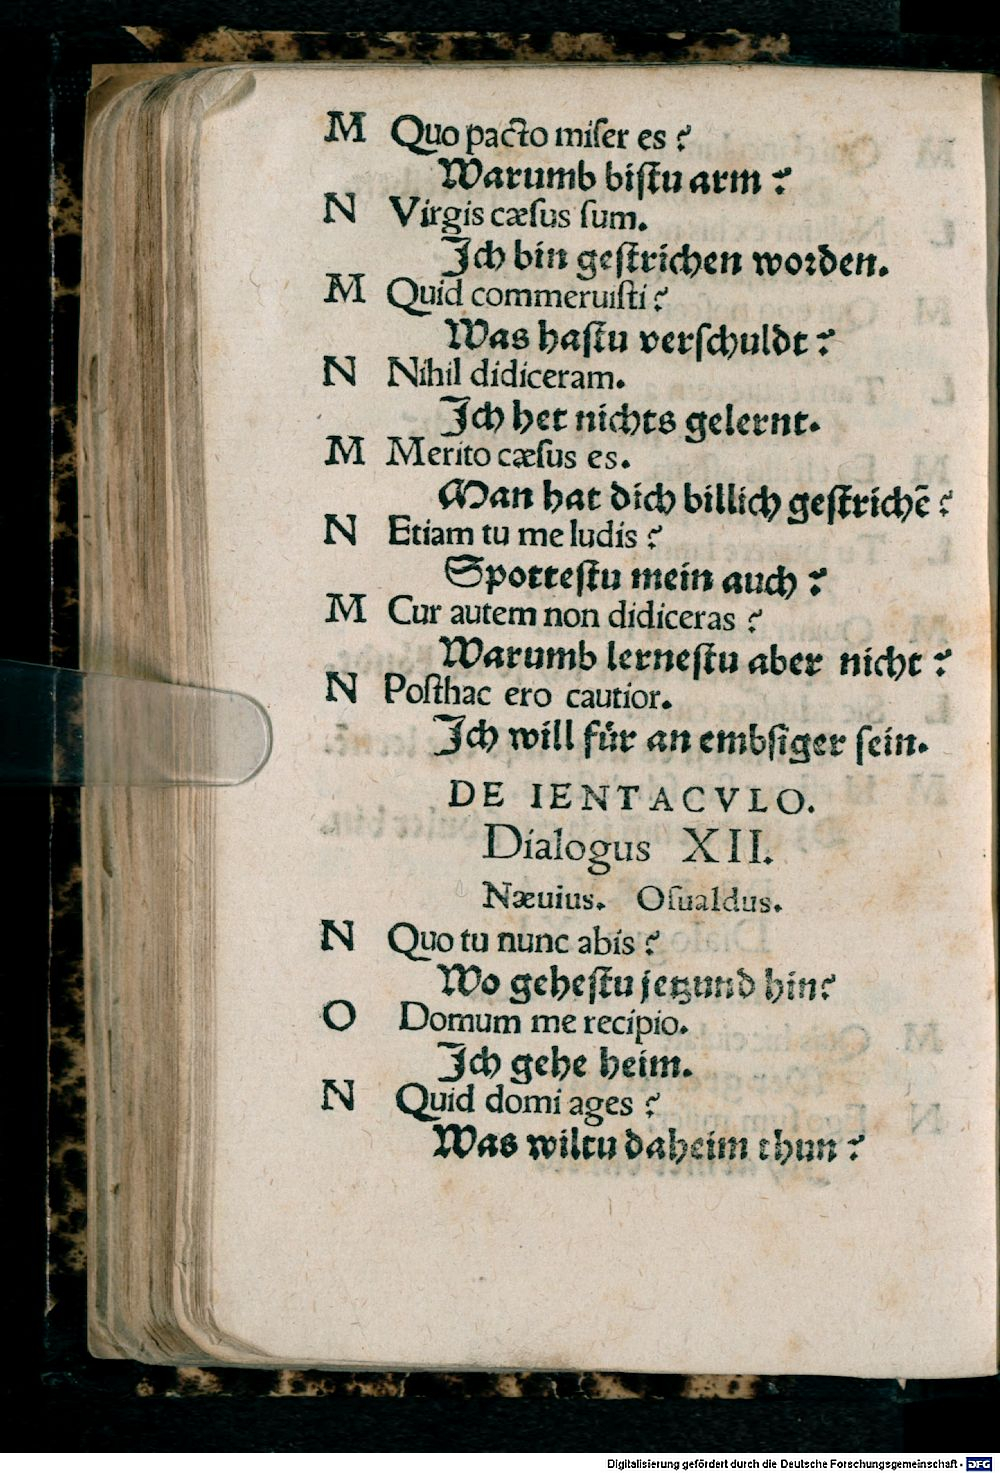 M Quo pacto miſer es?
Warumb biſtu arm?
N Virgis cæſus ſum.
Ich bin geſtrichen worden.
M Quid commeruiſti?
Was haſtu verſchuldt?
N Nihil didiceram.
Ich het nichts gelernt.
M Merito cæſus es.
Man hat dich billich geſtrichē?
N Etiam tu me ludis?
Spotteſtu mein auch?
M Cur autem non didiceras?
Warumb lerneſtu aber nicht?
N Poſthac ero cautior.
Ich will für an embſiger ſein.
DE IENTACVLO.
Dialogus XII.
Næuius. Oſualdus.
N Quo tu nunc abis?
Wo geheſtu jetzund hin?
O Domum me recipio.
Ich gehe heim.
N Quid domi ages?
Was wiltu daheim thun?
Digitalisierung gefördert durch die Deutsche Forschungsgemeinschaft - DFG